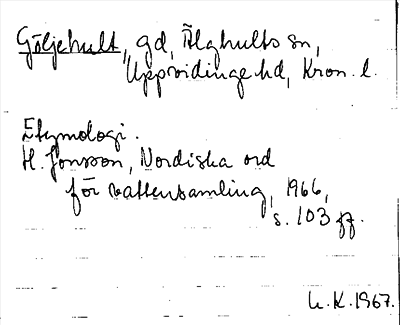 Göljehult, gd, Älghults sn,
Uppvidinge hd, Kron. l.
Etymologi.
H. Jonsson, Nordiska ord
för vattensamling, 1966,
s. 103 ff.
L.K. 1967.